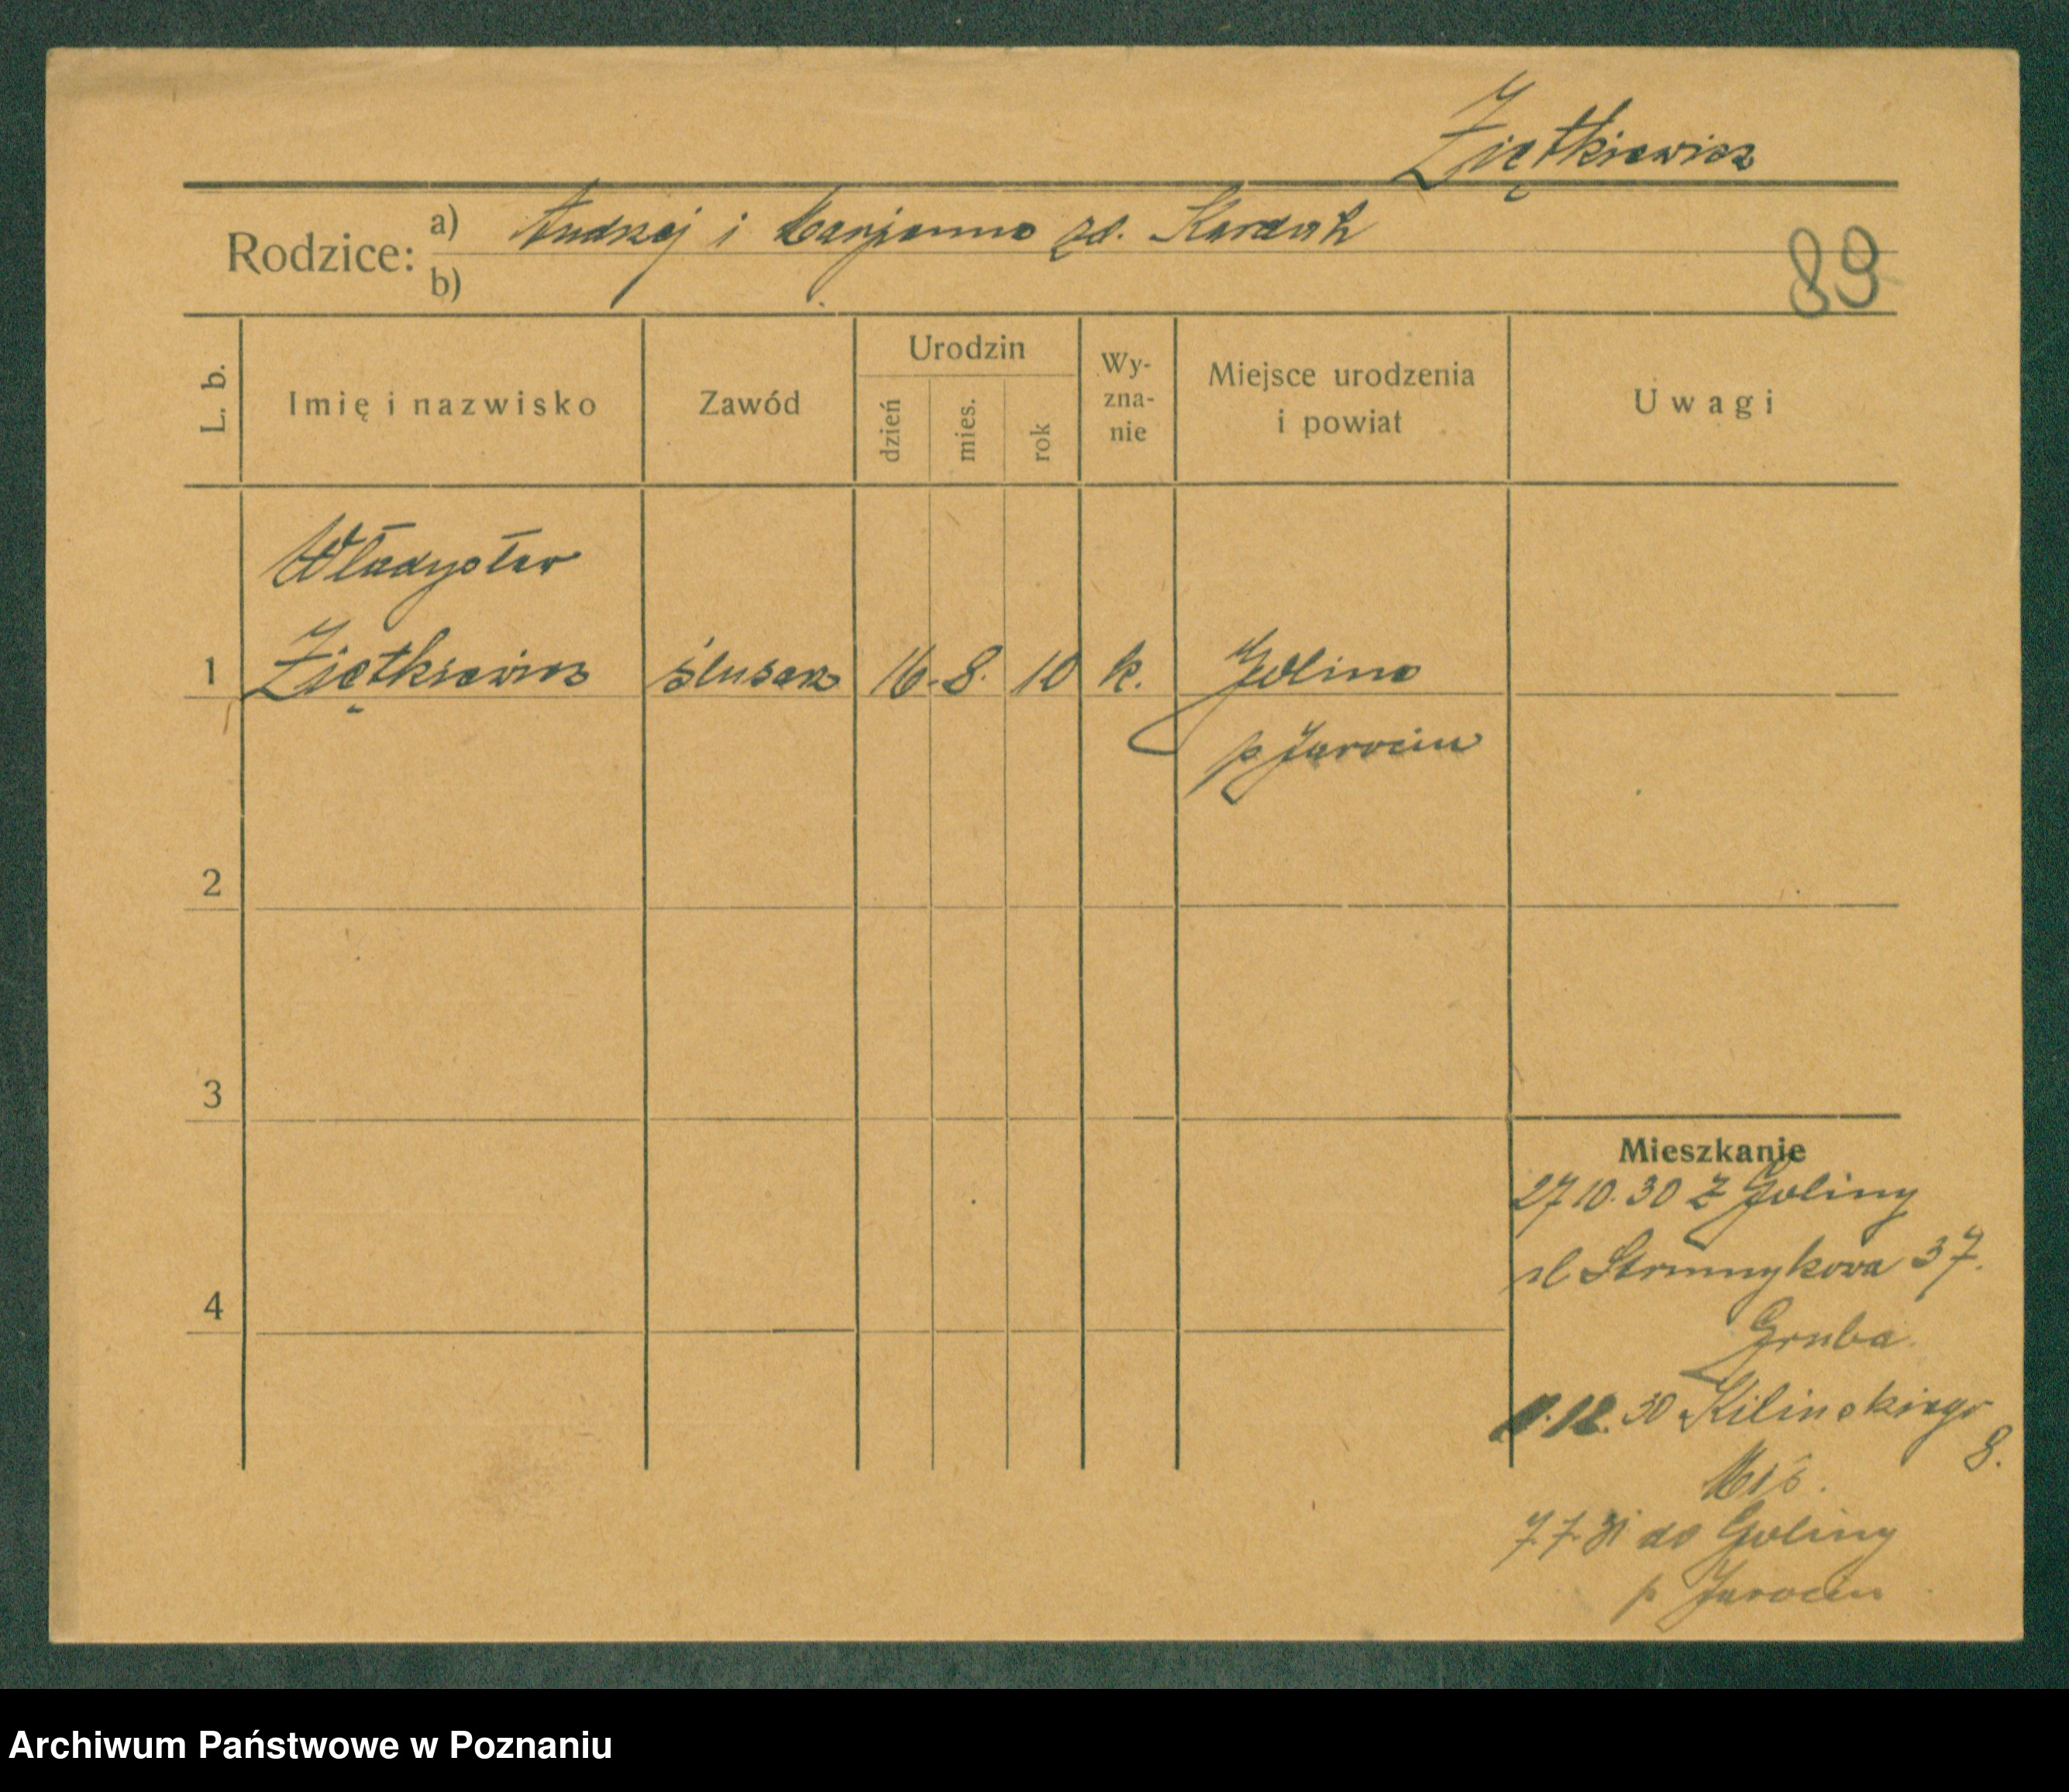 Ziętkiewicz
Rodzice: a) Andrzej i Marjanna zd.
b)
89
L. b.
Imię i nazwisko
Zawód
Urodzin
dzień
mies.
rok
Wy-
zna-
nie
Miejsce urodzenia
i powiat
Uwagi
Władysław
1 Ziętkiewicz ślusarz 16. 8. 10 k. Golina
p Jarocin
2
3
4
Mieszkanie
27 10. 30 z Goliny
ul Strumykowa 37.
Gruba
12. 30 Kilinskiego
8.
7. 7. 31 do Goliny
p Jarocin
Archiwum Państwowe w Poznaniu